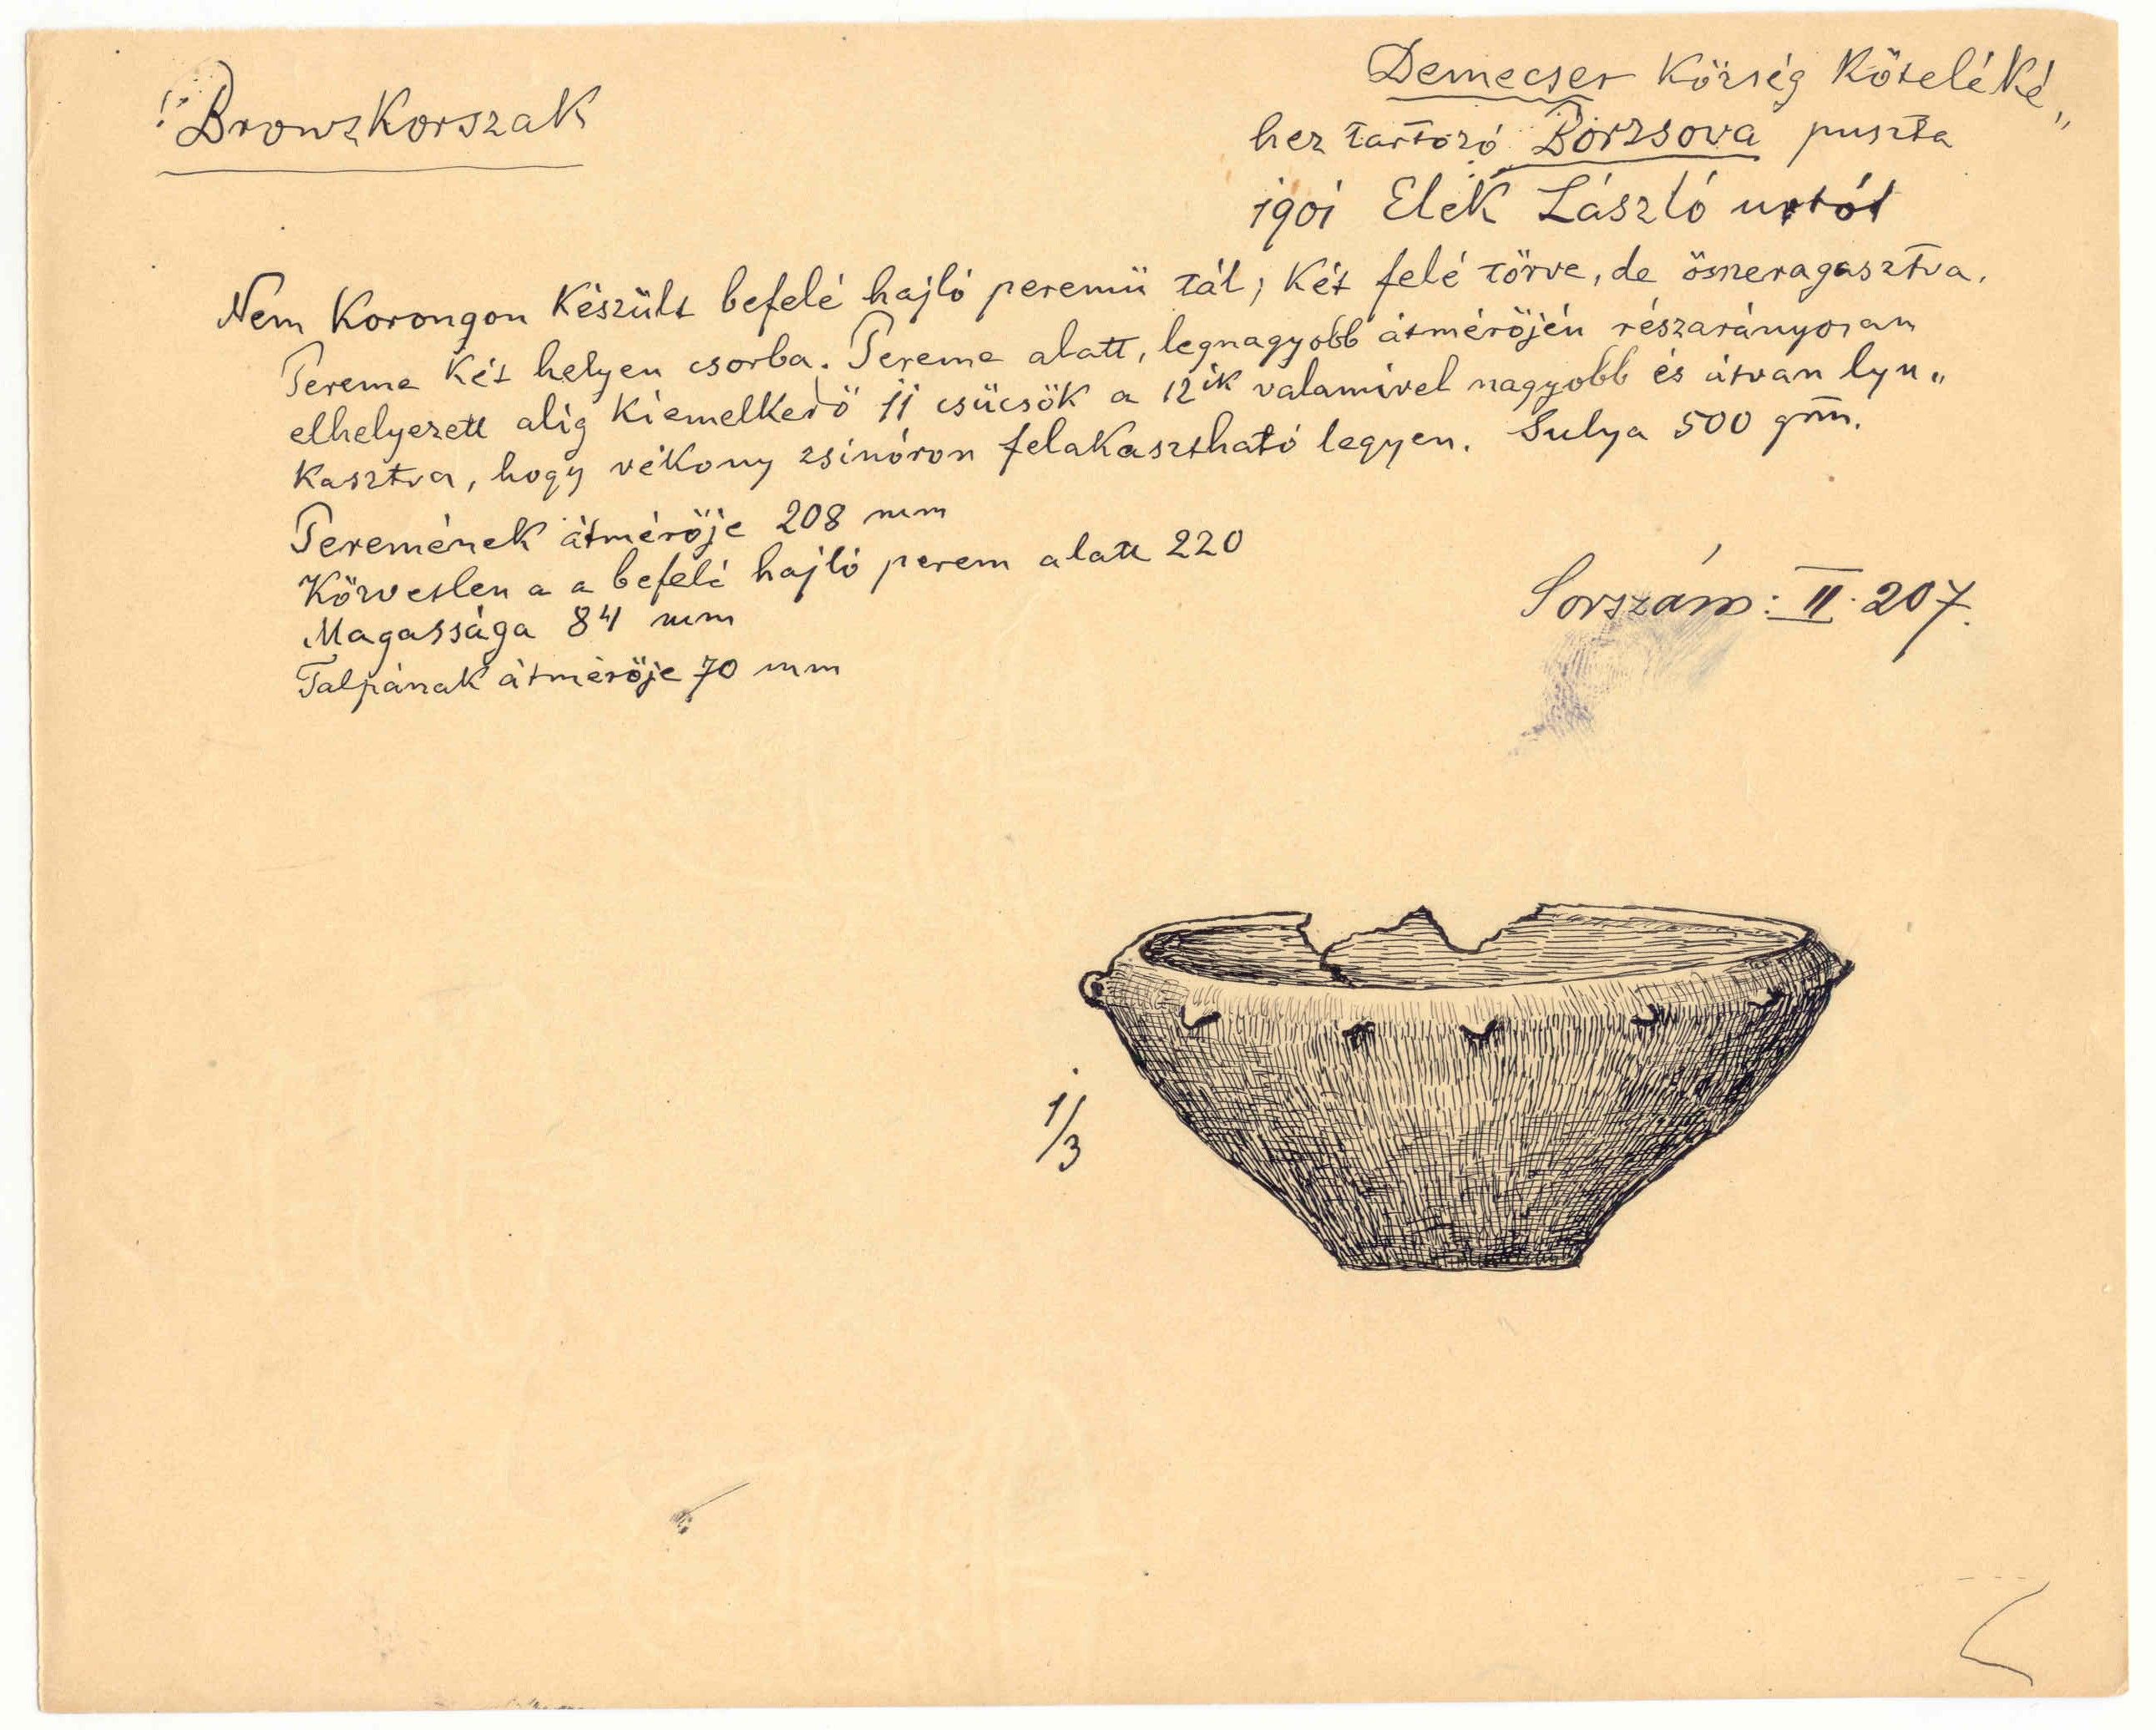 Bronzkorszak
Demecser Község Köteléké„
hez tartozó Borzsova puszta
1901 Elek László urtól
Nem korongon készült befelé hajló peremü tál; két felé törve, de összeragasztva.
Pereme két helyen csorba. Pereme alatt, legnagyobb átmérőjén részarányosan
elhelyezett alig kiemelkedő 11 csücsök a 12ik valamivel nagyobb és átvan lyu„
kasztva, hogy vékony zsinóron felakasztható legyen. Sulya 500 grm.
Peremének átmérője 208 mm
Közvetlen a a befelé hajló perem alatt 220
Magassága 84 mm
Talpának átmérője 70 mm
Sorszám: II. 207.
1/3